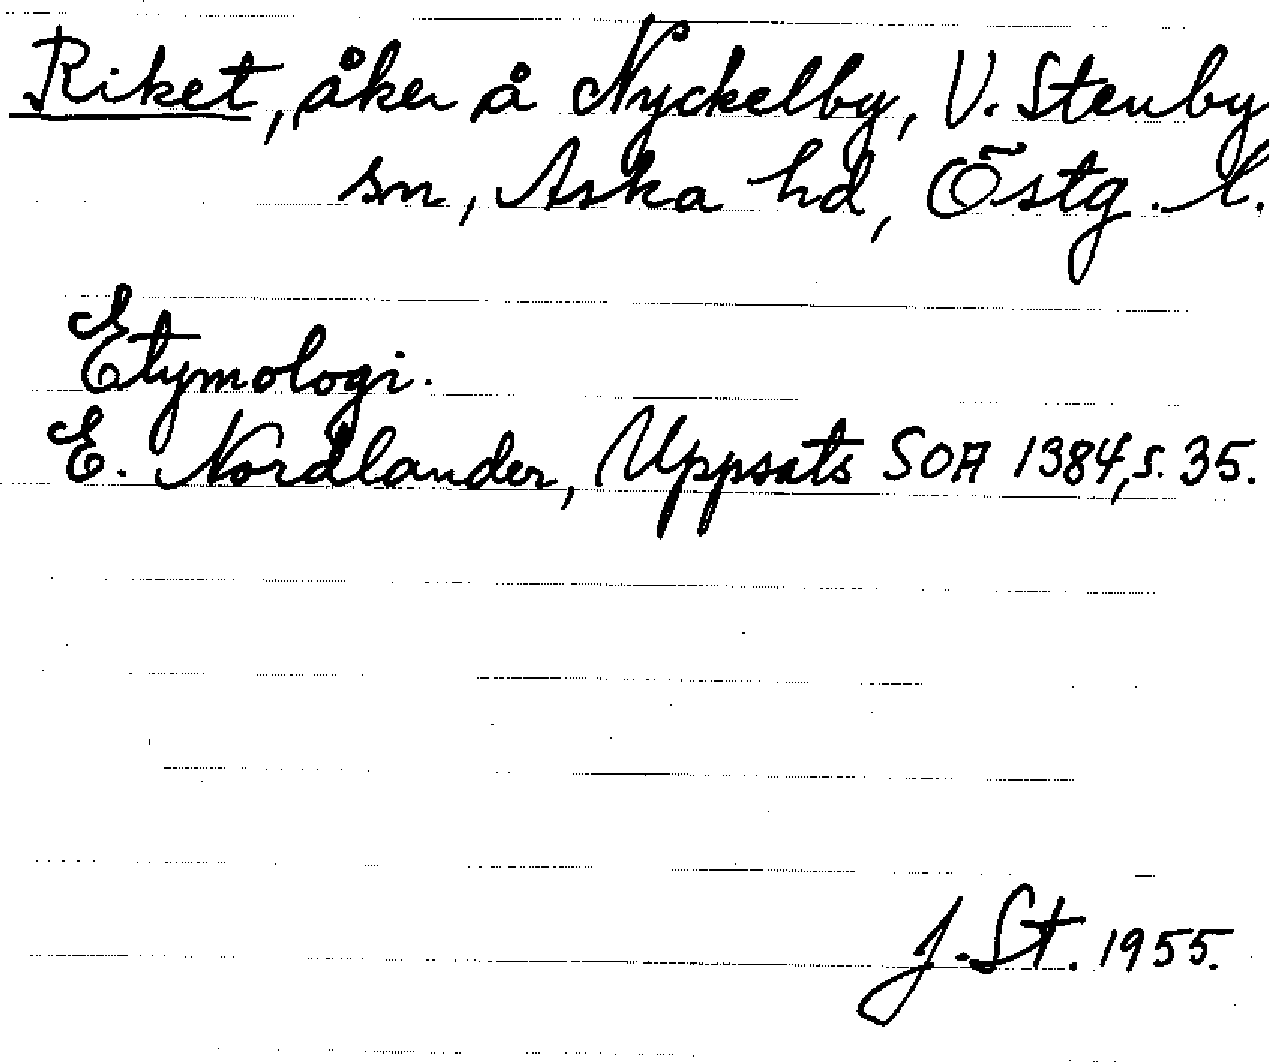 Riket, åker å Nyckelby, V. Stenby
sn, Aska hd, Östg. l.
Etymologi.
E. Nordlander, Uppsats SOA 1384, s. 35.
J. St. 1955.